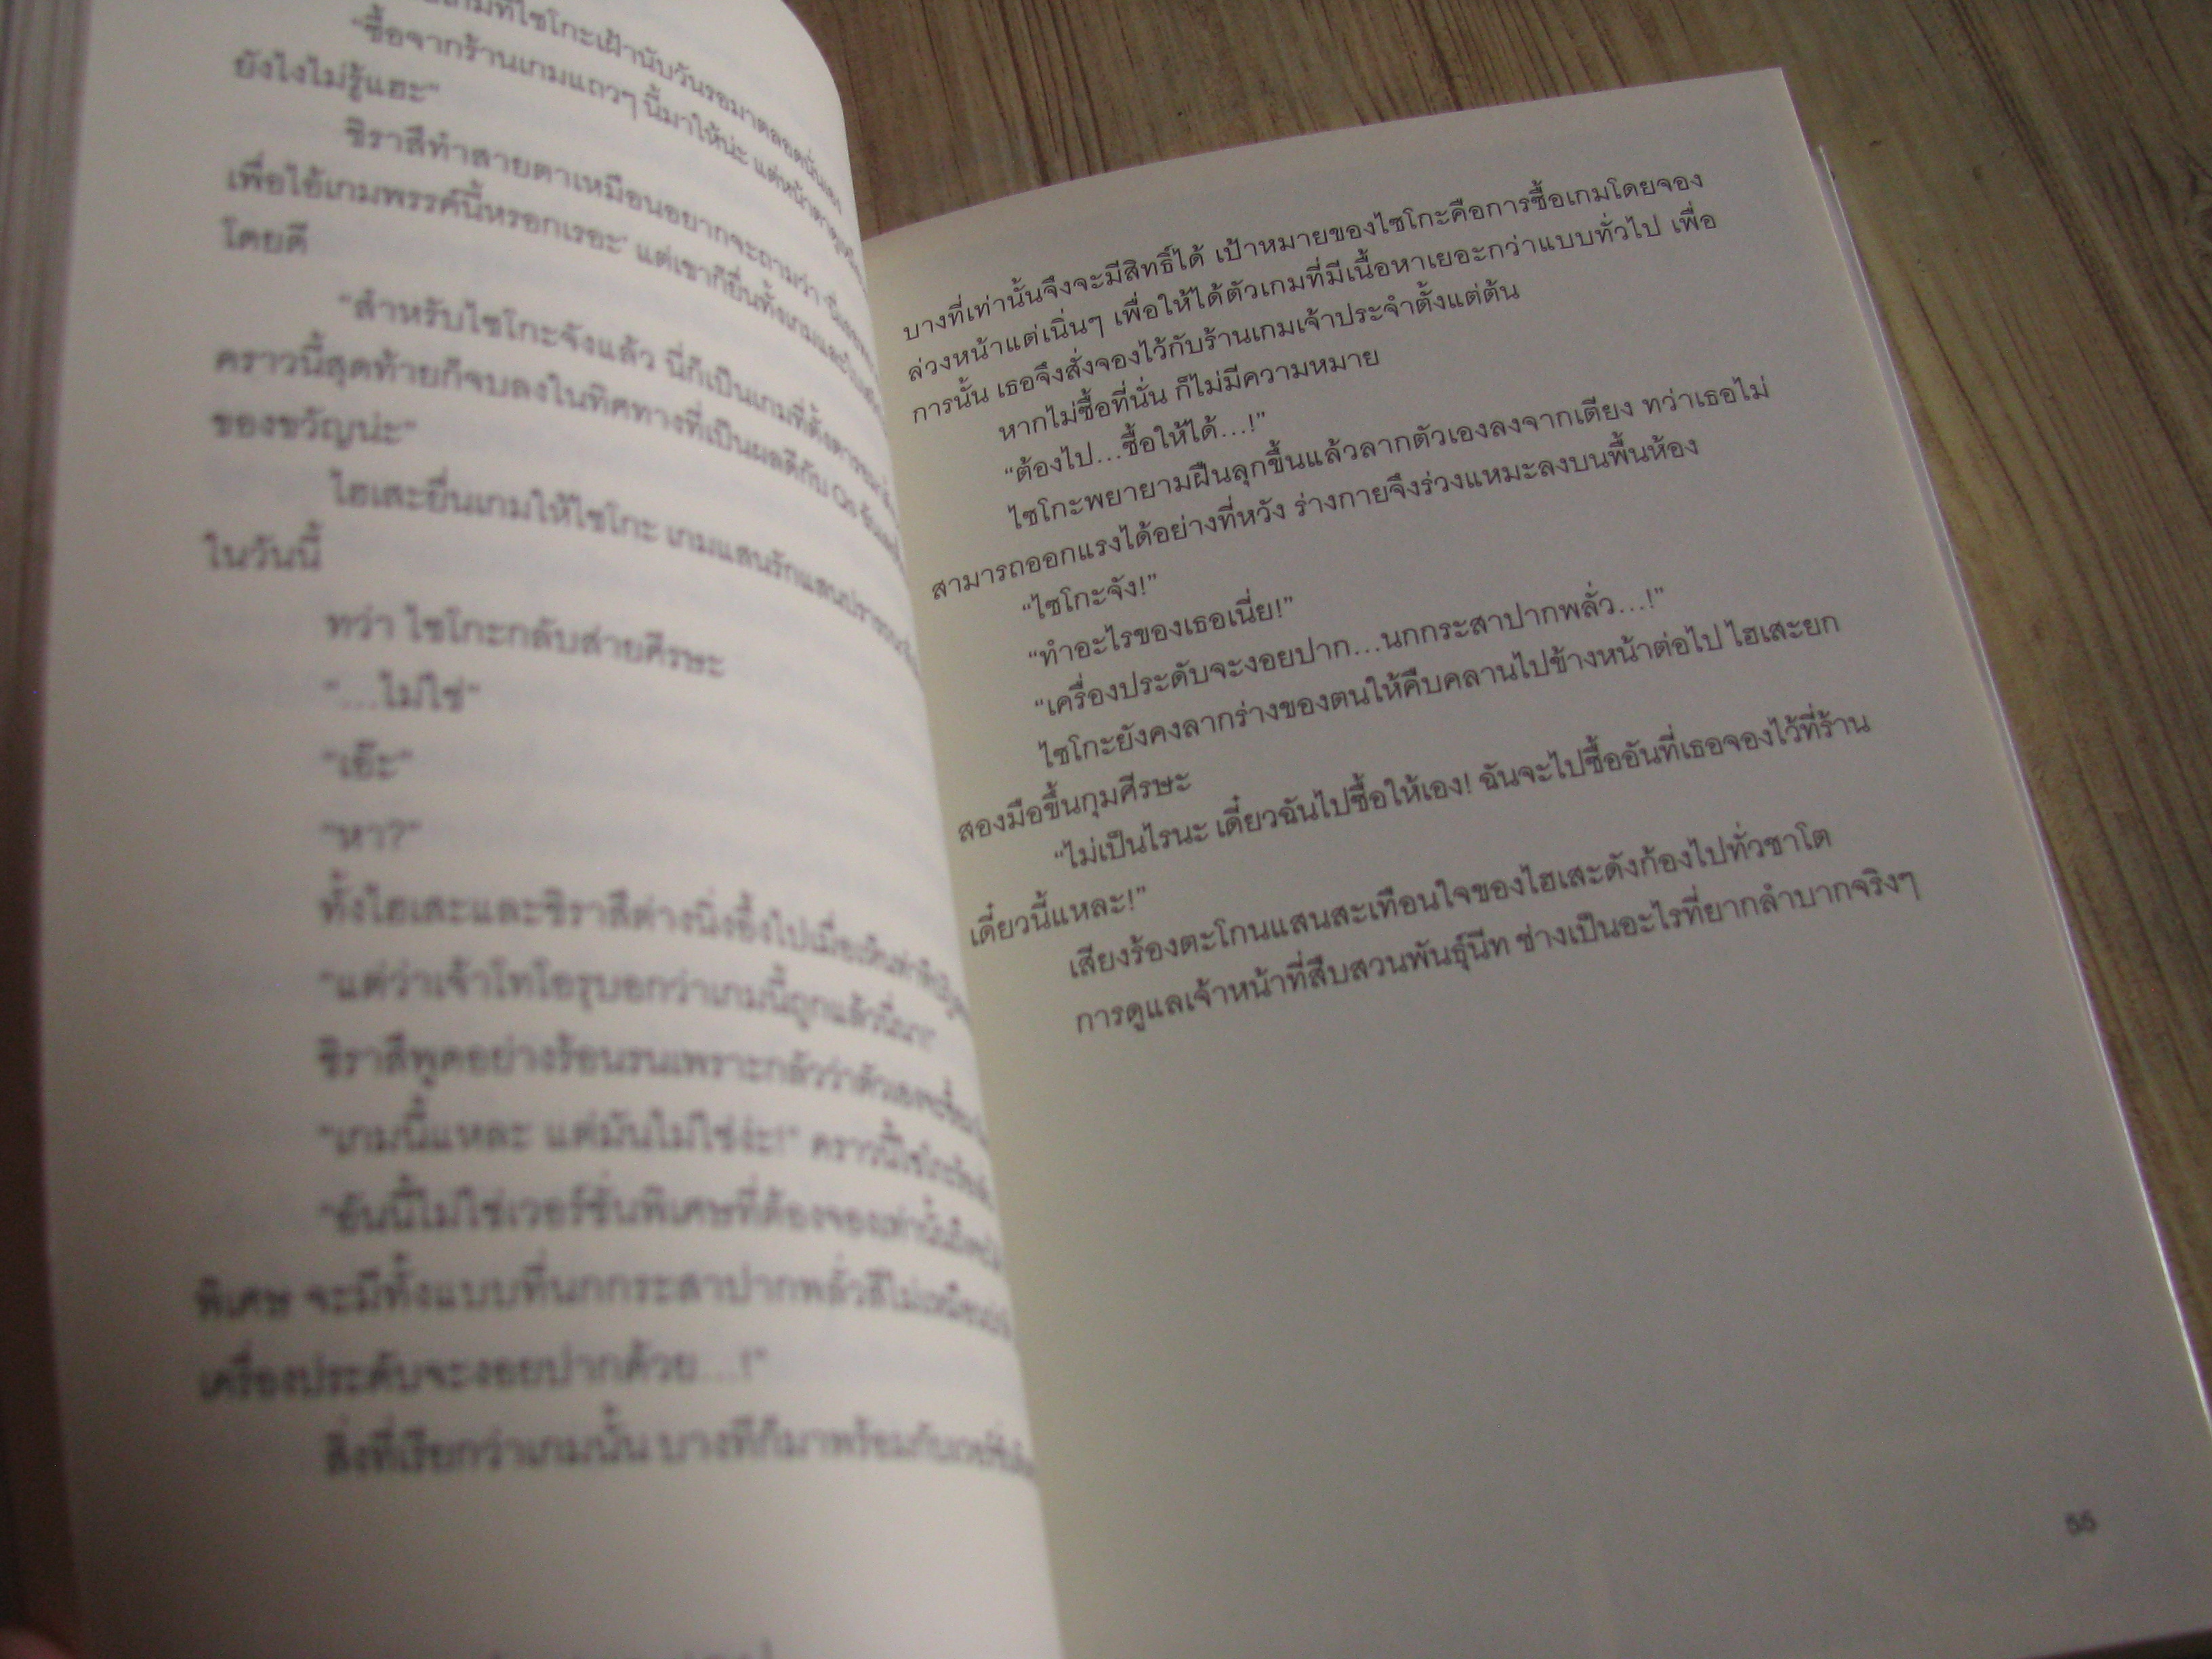 "ซื้อจากร้านเกมแถวๆ นี้มาให้น่ะ แต่หน้าตา
ยังไงไม่รู้แฮะ"
ชิราสึทำสายตาเหมือนอยากจะถามว่า
เพื่อไอ้เกมพรรค์นี้หรอกเรอะ' แต่เขาก็ยื่นทั้งเกมและ
โดยดี
"สำหรับไซโกะจังแล้ว นี่ก็เป็นเกมที่ตั้งตารอ
คราวนี้สุดท้ายก็จบลงในทิศทางที่เป็นผลดีกับ Qs
ของขวัญน่ะ"
ไฮเสะยื่นเกมให้ไซโกะ เกมแสนรักแสนปรารถนา
ในวันนี้
ทว่า ไซโกะกลับส่ายศีรษะ
"...ไม่ใช่"
"เอ๊ะ"
"หา?"
ทั้งไฮเสะและชิราสึต่างนิ่งอึ้งไปเมื่อ
"แต่ว่าเจ้าโทโอรุบอกว่าเกมนี้ถูกแล้วนี่นา!"
ชิราสึพูดอย่างร้อนรนเพราะกลัวว่าตัวเองจะ
"เกมนี้แหละ แต่มันไม่ใช่ง่ะ!" คราวนี้ไซโกะ
"อันนี้ไม่ใช่เวอร์ชั่นพิเศษที่ต้องจองเท่านั้น
พิเศษ จะมีทั้งแบบที่นกกระสาปากพลั่วสีไม่เหมือน
เครื่องประดับจะงอยปากด้วย...!"
สิ่งที่เรียกว่าเกมนั้น บางทีก็มาพร้อมกับ
บางที่เท่านั้นจึงจะมีสิทธิ์ได้ เป้าหมายของไซโกะคือการซื้อเกมโดยจอง
ล่วงหน้าแต่เนิ่นๆ เพื่อให้ได้ตัวเกมที่มีเนื้อหาเยอะกว่าแบบทั่วไป เพื่อ
การนั้น เธอจึงสั่งจองไว้กับร้านเกมเจ้าประจำตั้งแต่ต้น
หากไม่ซื้อที่นั่น ก็ไม่มีความหมาย
"ต้องไป...ซื้อให้ได้...!"
ไซโกะพยายามฝืนลุกขึ้นแล้วลากตัวเองลงจากเตียง ทว่าเธอไม่
สามารถออกแรงได้อย่างที่หวัง ร่างกายจึงร่วงแหมะลงบนพื้นห้อง
"ไซโกะจัง!"
"ทำอะไรของเธอเนี่ย!"
"เครื่องประดับจะงอยปาก...นกกระสาปากพลั่ว...!"
ไซโกะยังคงลากร่างของตนให้คืบคลานไปข้างหน้าต่อไป ไฮเสะยก
สองมือขึ้นกุมศีรษะ
"ไม่เป็นไรนะ เดี๋ยวฉันไปซื้อให้เอง! ฉันจะไปซื้ออันที่เธอจองไว้ที่ร้าน
เดี๋ยวนี้แหละ!"
เสียงร้องตะโกนแสนสะเทือนใจของไฮเสะดังก้องไปทั่วชาโต
การดูแลเจ้าหน้าที่สืบสวนพันธุ์นีท ช่างเป็นอะไรที่ยากลำบากจริงๆ
55